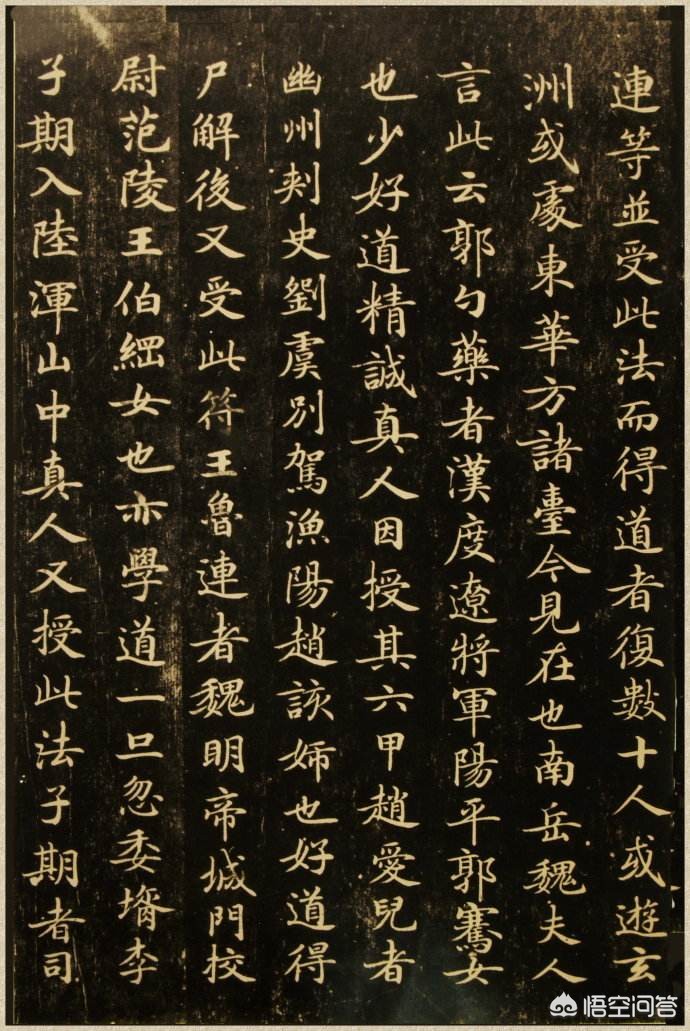 連等並受此法而得道者復數十人或遊玄
洲或處東華方諸臺今見在也南岳魏夫人
言此云郭勺藥者漢度遼將軍陽平郭騫女
也少好道精誠真人因授其六甲趙愛兒者
幽州刾史劉虞別駕漁陽趙該姉也好道得
尸解後又受此符王魯連者魏明帝城門校
尉范陵王伯綱女也亦學道一旦忽委壻李
子期入陸渾山中真人又授此法子期者司
悟空问答